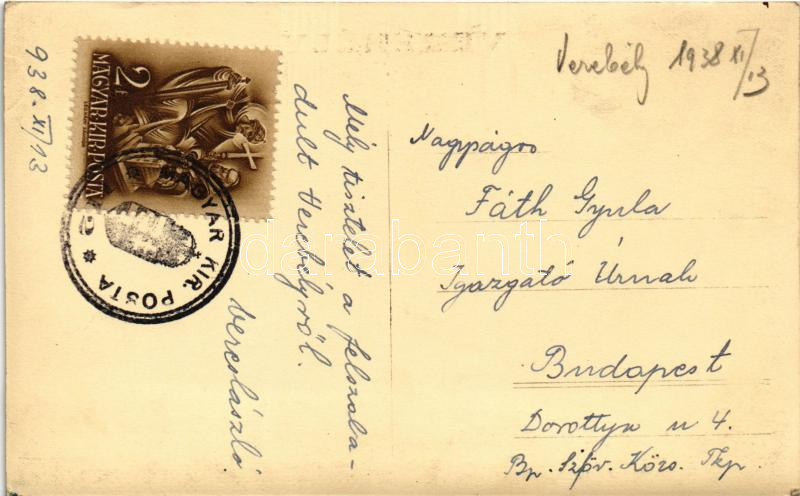 Verebély 1938 XI/13
938. XI/13
2 f
MAGYAR KIR. POSTA
MAGYAR KIR. POSTA * 2 *
Mély tisztelet a felszaba-
dult Verebélyről.
Nagyságos
Fáth Gyula
Igazgató Úrnak
Budapest
Dorottya u 4.
Bp. Szöv. Közs. Tkp.
darabanth